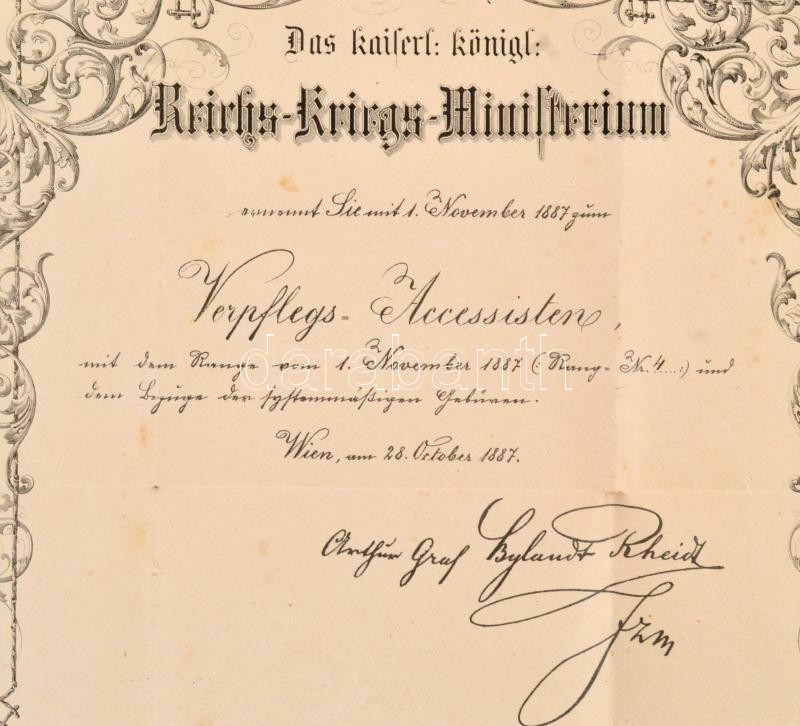 Das kaiserl: königl:
Reichs-Kriegs-Ministerium
ernennt Sie mit 1. November 1887 zum
Verpflegs-Accessisten,
mit dem Range vom 1. November 1887 (: Rang-Nr. 4....:) und
dem Bezuge der systemmäßigen Gebüren.
Wien, am 28. October 1887.
Arthur Graf Bylandt Rheidt
Fzm
darabanth